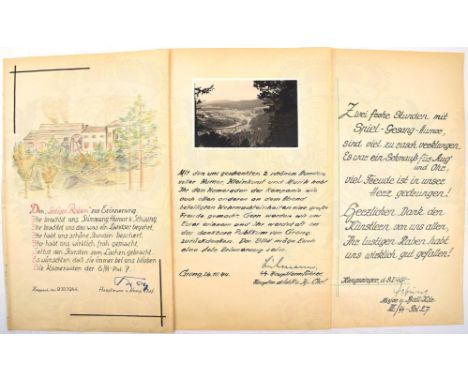 Den "lustigen Raben" zur Erinnerung.
Ihr brachtet uns Stimmung Humor u. Schwung
Ihr brachtet uns das was ein Landser begehrt,
Ihr habt uns schöne Stunden beschert.
Ihr habt uns wirklich froh gemacht,
selbst den ernsten zum Lachen gebracht.
Es wünschten daß sie immer bei uns blieben
Alle Kameraden der
9.10.1944.
Hauptmann u. Komp. Chef
Mit den uns geschenkten 2 schönen Stunden
voller Humor, Kleinkunst und Musik habt
Ihr den Kameraden der Kompanie wie
auch allen anderen an dem Abend
beteiligten Wehrmachteinheiten eine große
Freude gemacht. Gern werden wir uns
Eurer erinnern und Ihr werdet oft an
das dankbare Publikum von
zurückdenken. Das Bild möge Euch
eine liebe Erinnerung sein.
26.10.44.
Zwei frohe Stunden mit
Spiel-Gesang-Humor,
sind viel zu rasch verklungen.
Es war ein Schmauß für Aug'
und Ohr,
viel Freude ist in unser
Herz gedrungen!
Herzlichen Dank den
Künstlern von uns allen,
Ihr lustigen Raben habt
uns wirklich gut gefallen!